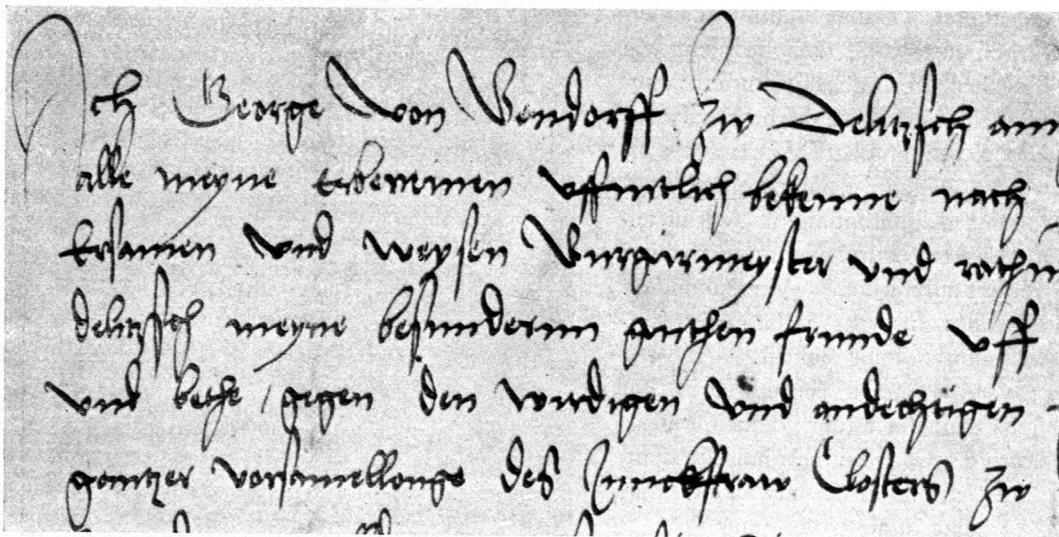 Ich George von Bendorff zw Delitzsch am
alle meyne erbenemen uffintlich bekenne nach
Ersamen und weysen Burgermeyster und rathm
delitzsch meyne besundernn guthen frunde uff
und bethe / gegen den wirdigen und andechtigen
gantzer vorsamellonge des Junckfraw Closters zw